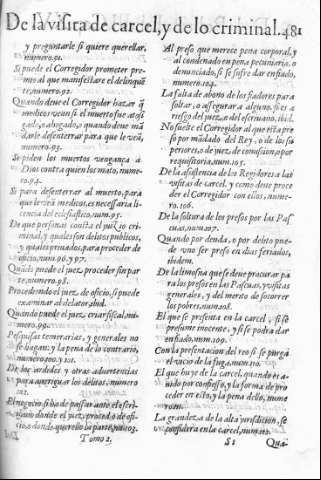 De la visita de carcel, y de lo criminal. 481
y preguntarle si quiere querellar,
numero.91.
Si puede el Corregidor prometer premio
al que manifestare el delinquente.
Quando deue el Corregidor hazer q̃
medicos vean si el muerto fue
o ahogado, o quando deue mãdarle
desenterrar para que le veã,
numero.93.
Si piden los muertos vengança à
Dios contra quien los mato, numero.94.
Si para desenterrar al muerto, para
que le veã medicos, es necessaria licencia
del eclesiastico, num.95.
De que personas consta el juizio criminal,
y quales son delitos publicos,
y quales priuados, para proceder de
oficio, num.96.y 97.
Quãdo puede el juez proceder sin parte,
numero.98.
Procediendo el juez de oficio, si puede
examinar al delator.ibid.
Quando puede el juez criar fiscal, numero.99.
Pesquisas temerarias, y generales no
se hagan: y la pena de lo contrario,
numero.100.y 101.
De los ardides y otras aduertencias
para aueriguar los delitos, numero
102.
El negocio si ha de passar ante el escriuano
donde el juez procedio de oficio,
o donde querello la parte, nu.103.
Tomo 2.
Al preso que merece pena corporal, y
al condenado en pena pecuniaria, o
denunciado, si se sufre dar enfiado,
numero.104.
La falta de abono de los fiadores para
soltar, o assegurar a alguno, si es a
riesgo del juez, o del escriuano, ibid.
No suelte el Corregidor al que esta preso
por mãdado del Rey, o de los superiores,
o de juez de comission, o por
requisitoria, num.105.
De la assistencia de los Regidores a las
visitas de carcel, y como deue proceder
el Corregidor con ellos, numero.106.
De la soltura de los presos por las Pascuas,
num.107.
Quando por deuda, o por delito puede
vno ser preso en dias feriados,
ibidem.
De la limosna que se deue procurar para
los presos en las Pascuas, y visitas
generales, y del merito de socorrer
los pobres, num.108.
El que se presenta en la carcel, si se
presume inocente, y si se podra dar
enfiado, num.109.
Con la presentacion del reo si se purga
el vicio de la fuga, num.110.
El que huye de la carcel, quando es auido
por confesso, y la forma de proceder
en esto, y la pena dello, numero
La grandeza de la alta jurisdicion, se
considera en la carcel, num.112.
S1 Qua-